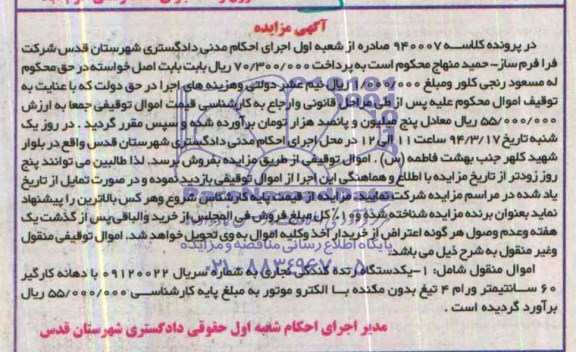 آگهی مزایده
در پرونده کلاسه ۹۴۰۰۰۷ صادره از شعبه اول اجرای احکام مدنی دادگستری شهرستان قدس شرکت
فرا فرم ساز- حمید منهاج محکوم است به پرداخت ۷۰/۳۰۰/۰۰۰ ریال بابت بابت اصل خواسته در حق محکوم
له مسعود رنجی کلور ومبلغ ۱/۰۰۰/۰۰۰ ریال نیم عشر دولتی وهزینه های اجرا در حق دولت که با عنایت به
توقیف اموال محکوم علیه پس از طی مراحل قانونی وارجاع به کارشناسی قیمت اموال توقیفی جمعا به ارزش
۵۵/۰۰۰/۰۰۰ ریال معادل پنج میلیون و پانصد هزار تومان برآورده شده و سپس مقرر گردید . در روز یک
شنبه تاریخ ۹۴/۳/۱۷ ساعت ۱۱ الی ۱۲ در محل اجرای احکام مدنی دادگستری شهرستان قدس واقع در بلوار
شهید کلهر جنب بهشت فاطمه (س) . اموال توقیفی از طریق مزایده بفروش برسد. لذا طالبین می توانند پنج
روز زودتر از تاریخ مزایده با اطلاع و هماهنگی این اجرا از اموال توقیفی بازدید نموده و در صورت تمایل از تاریخ
یاد شده در مراسم مزایده شرکت نمایند. مزایده از قیمت پایه کارشناس شروع وهر کس بالاترین را پیشنهاد
نماید بعنوان برنده مزایده شناخته شده و ۱۰٪ کل مبلغ فروش فی المجلس از خرید والباقی پس از گذشت یک
هفته وعدم وصول هر گونه اعتراض از خریدار اخذ وکلیه اموال به وی تحویل خواهد شد. اموال توقیفی منقول
وغیر منقول به شرح ذیل می باشد:
اموال منقول شامل: ۱-یکدستگاه رنده گندگی نجاری به شماره سریال ۰۹۱۲۰۰۲۲ با دهانه کارگیر
۶۰ سانتیمتر ورام ۴ تیغ بدون مکنده بـا الکترو موتور به مبلغ پایه کارشناسـی ۵۵/۰۰۰/۰۰۰ ریال
برآورد گردیده است .
مدیر اجرای احکام شعبه اول حقوقی دادگستری شهرستان قدس
پایگاه اطلاع رسانی مناقصه و مزایده